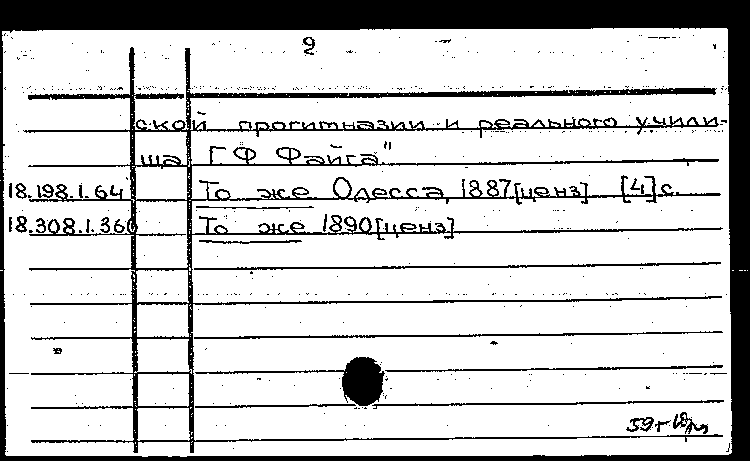 2
ской прогимназии и реального учили-
ща Г Ф Файга"
18.198.1.64 То же Одесса, 1887[ценз] [4]с.
18.308.1.360 То же 1890[ценз]